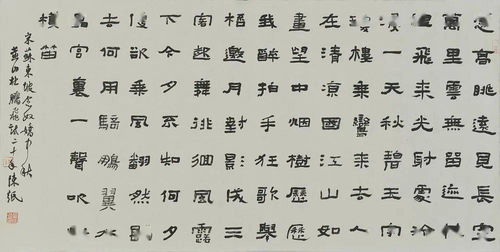 高眺遠見長空
萬里雲無留迹
飛來光射處冷
浸一天秋碧玉宇
樓乘鸞來去人
在清涼國江山如
畫望中煙樹歷歷
我醉拍手狂歌舉
杯邀月對影成三
客起舞徘徊風露
下今夕不知何夕
便欲乘風翻然歸
去何用騎鵬翼水
宮裏一聲吹
橫笛
宋蘇東坡念奴嬌中秋
黃山杜鵬飛錄二十年陳紙